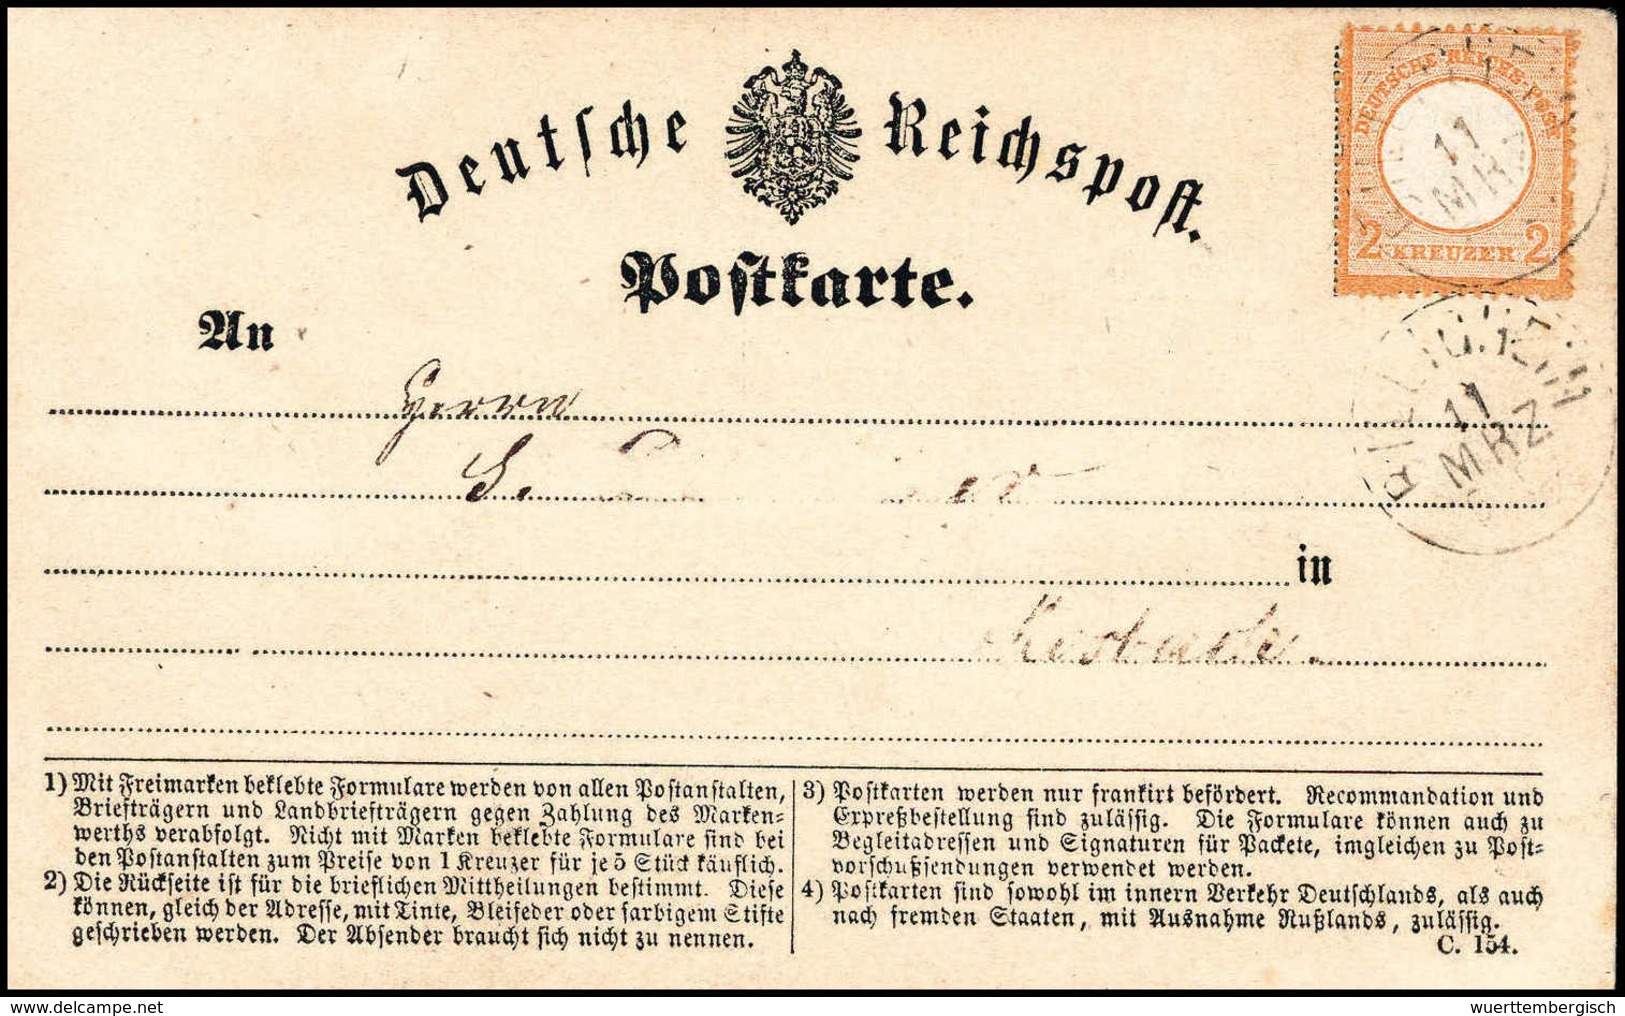 Deutsche Reichspost.
DEUTSCHE REICHS-POST
11
MRZ
2 KREUZER 2
Postkarte.
An
11
MRZ
Herrn
S.
in
1) Mit Freimarken beklebte Formulare werden von allen Postanstalten,
Briefträgern und Landbriefträgern gegen Zahlung des Marken=
werths verabfolgt. Nicht mit Marken beklebte Formulare sind bei
den Postanstalten zum Preise von 1 Kreuzer für je 5 Stück käuflich.
2) Die Rückseite ist für die brieflichen Mittheilungen bestimmt. Diese
können, gleich der Adresse, mit Tinte, Bleifeder oder farbigem Stifte
geschrieben werden. Der Absender braucht sich nicht zu nennen.
3) Postkarten werden nur frankirt befördert. Recommandation und
Expreßbestellung sind zulässig. Die Formulare können auch zu
Begleitadressen und Signaturen für Packete, imgleichen zu Post=
vorschußsendungen verwendet werden.
4) Postkarten sind sowohl im innern Verkehr Deutschlands, als auch
nach fremden Staaten, mit Ausnahme Rußlands, zulässig.
C. 154.
wuerttembergisch